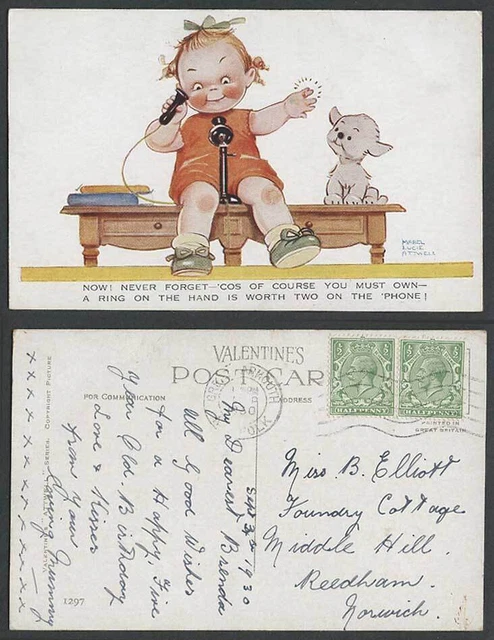 MABEL
LUCIE
ATTWELL
NOW! NEVER FORGET—'COS OF COURSE YOU MUST OWN—
A RING ON THE HAND IS WORTH TWO ON THE 'PHONE!
VALENTINE'S
POST CAR
FOR COMMUNICATION
ADDRESS
HALFPENNY
HALFPENNY
PRINTED IN
GREAT BRITAIN
COPYRIGHT PICTURE
SERIES.
Sept 3rd 1930
My Dearest Brenda
All Good Wishes
for a Happy Five
Year Old. Birthday
Love & Kisses
from your
Loving Mummy
x x x x x x x x x x
Miss B. Elliott
Foundry Cottage
Middle Hill.
Reedham.
Norwich.
1297